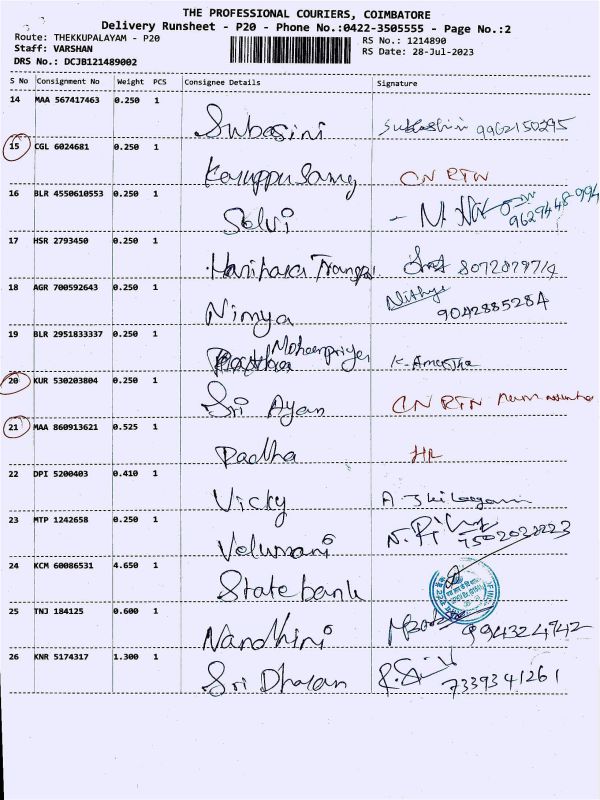 THE PROFESSIONAL COURIERS, COIMBATORE
Delivery Runsheet - P20 - Phone No.:0422-3505555 - Page No.:2
Route: THEKKUPALAYAM - P20 RS No.: 1214890
Staff: VARSHAN RS Date: 28-Jul-2023
DRS No.: DCJB121489002
S No Consignment No Weight PCS Consignee Details Signature
14 MAA 567417463 0.250 1 Subasini 9962150295
15 CGL 6024681 0.250 1 Karuppusamy CN RTN
16 BLR 4550610553 0.250 1 Selvi
17 HSR 2793450 0.250 1 8072079714
18 AGR 700592643 0.250 1 Nimya Nithya
9042885284
19 BLR 2951833337 0.250 1
20 KUR 530203804 0.250 1 Sri Ayan CN RTN
21 MAA 860913621 0.525 1 Radha
22 DPI 5200403 0.410 1 Vicky
23 MTP 1242658 0.250 1 Velumani 7502022223
24 KCM 60086531 4.650 1 State bank
25 TNJ 184125 0.600 1 Nandhini 994324942
26 KNR 5174317 1.300 1 Sri Dharan 7339341261